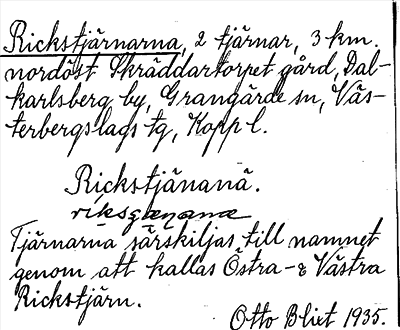 Rickstjärnarna, 2 tjärnar, 3 km.
nordöst Skräddartorpet gård, Dal-
karlsberg by, Grangärde sn, Väs-
terbergslags tg, Kopp l.
Rickstjänanä.
Tjärnarna särskiljas till namnet
genom att kallas Östra- & Västra
Rickstjärn.
Otto Blixt 1935.